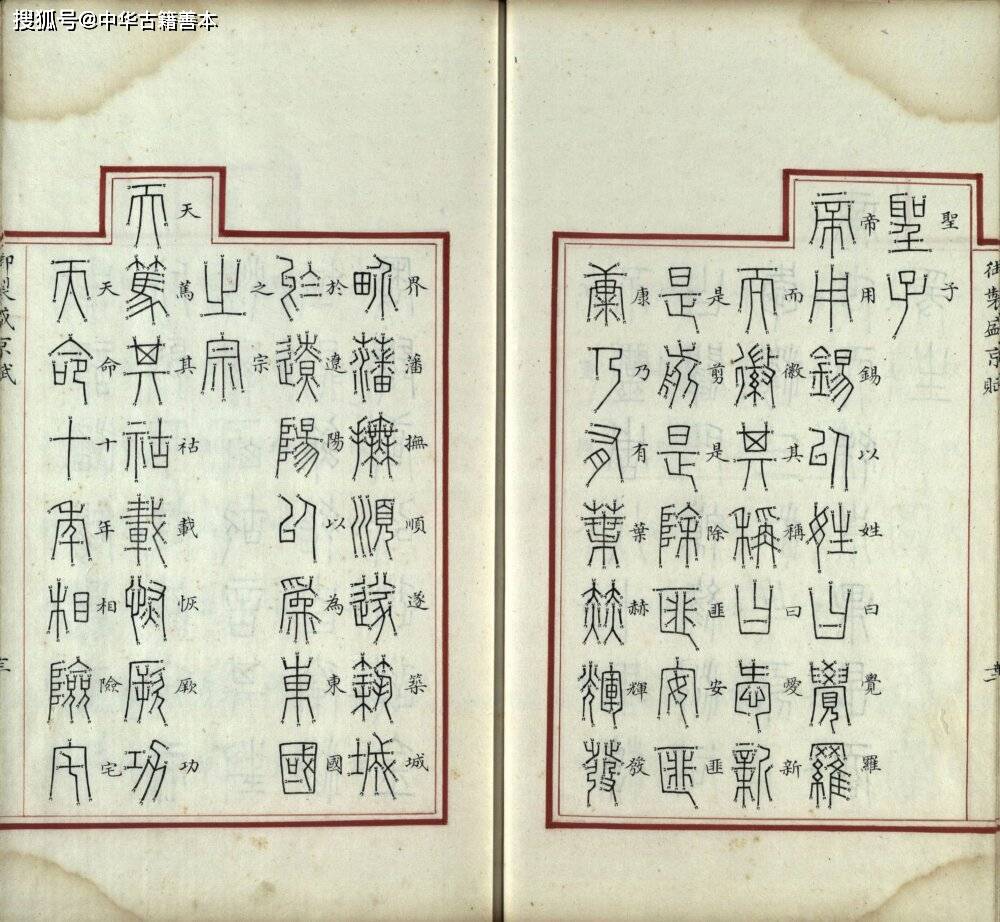 搜狐号@中华古籍善本
御製盛京賦
聖子
帝用錫以姓曰覺羅
而徽其稱曰愛新
是剪是除匪安匪
康乃有葉赫輝發
界藩撫順遂築城
於遼陽以為東國
之宗
天篤其祜載恢厥功
天命十年相險宅
御製盛京賦
三